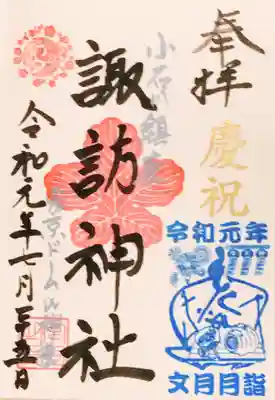 奉拝
慶祝
小石川鎮守
諏訪神社
令和元年七月二十五日
令和元年
文月月詣